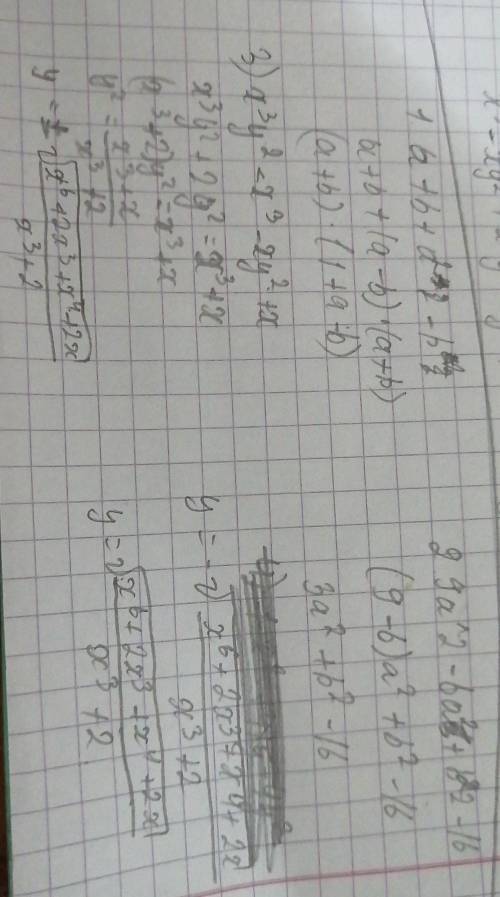 1 a + b + a^2 - b^2
a + b + (a - b) · (a + b)
(a + b) · (1 + a - b)
3) x^3y^2 = x^3 - 2y^2 + x
x^3y^2 + 2y^2 = x^3 + x
(x^3 + 2)y^2 = x^3 + x
y^2 = (x^3 + x)/(x^3 + 2)
y = ± √(x^6 + 2x^3 + x^4 + 2x)/(x^3 + 2)
9a^2 - 6a^2 + b^2 - 16
(9 - 6)a^2 + b^2 - 16
3a^2 + b^2 - 16
y = - √(x^6 + 2x^3 + x^4 + 2x)/(x^3 + 2)
y = √(x^6 + 2x^3 + x^4 + 2x)/(x^3 + 2)